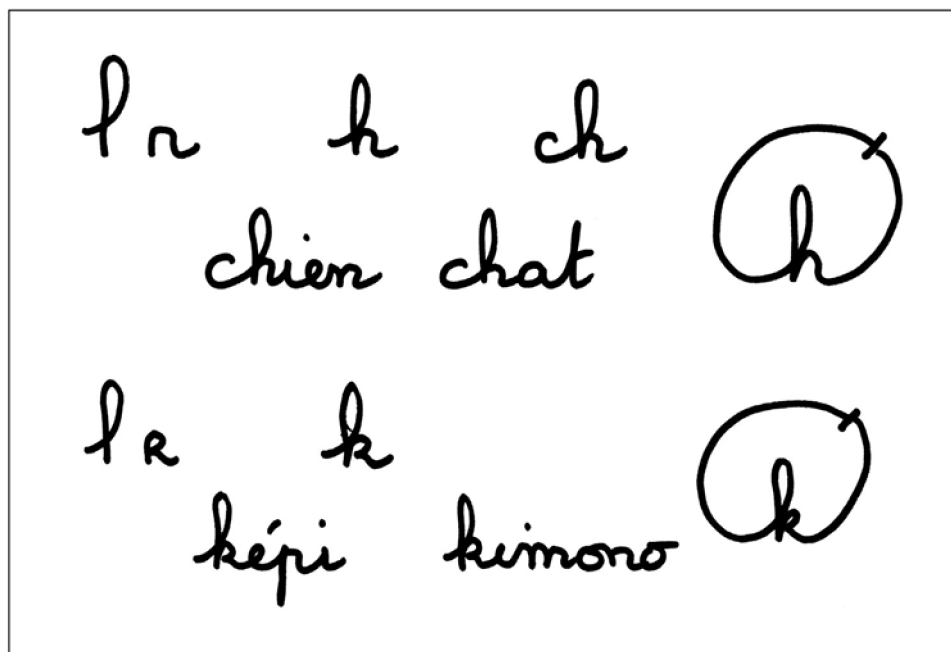 l n h ch
h
chien chat
l k
k
képi kimono